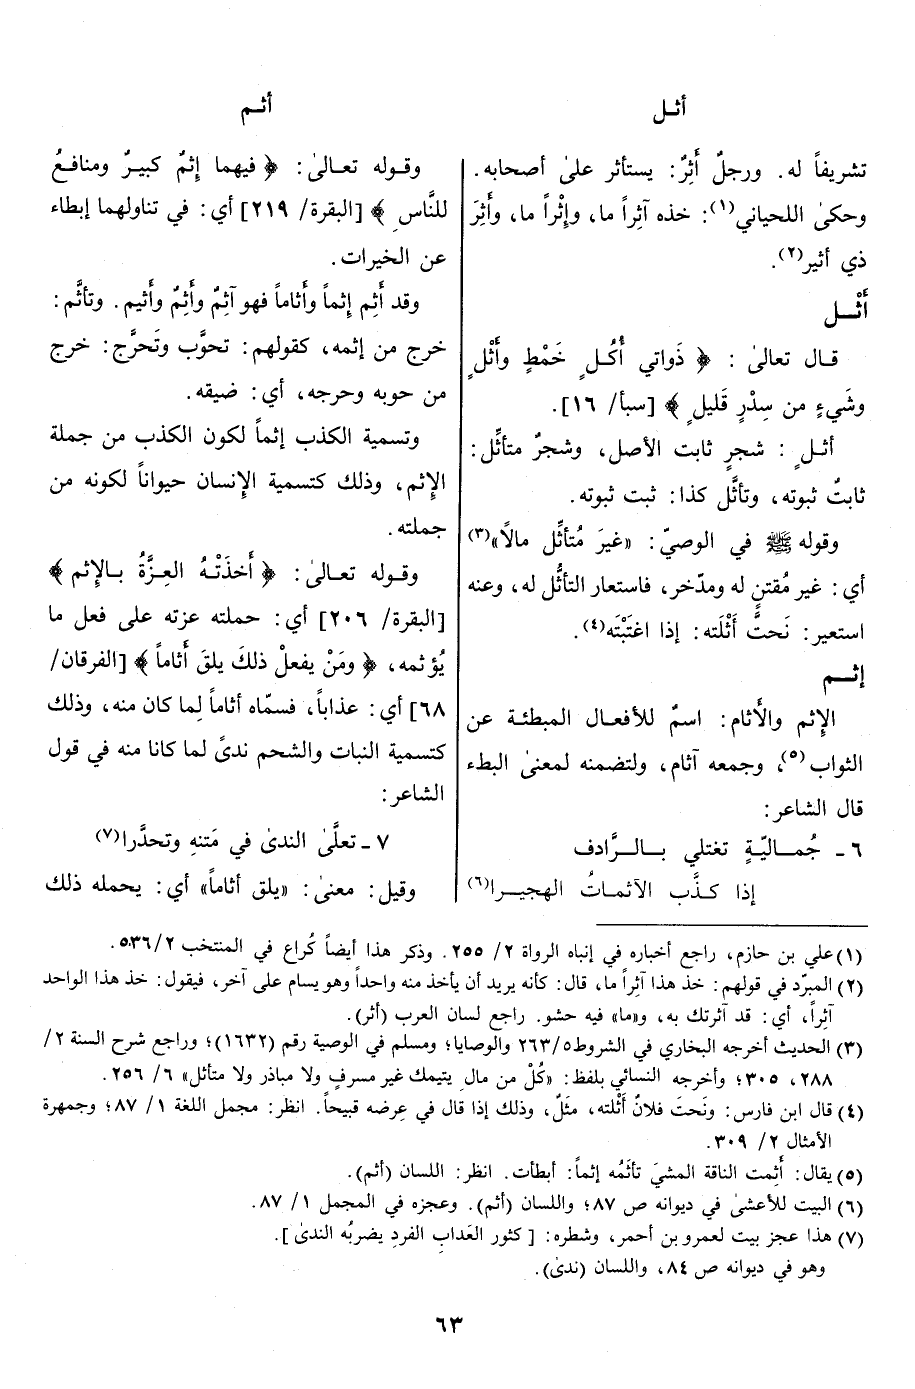 أثـل
أثـم
تشريفاً له. ورجلٌ أَثِرٌ: يستأثر علىٰ أصحابه.
وحكىٰ اللحياني(١): خذه آثِراً ما، وإِثْراً ما، وأَثِرَ
ذي أثير(٢).
أَثْـل
قـال تعالىٰ : ﴿ ذَواتي أُكُـلٍ خَمْطٍ وأَثْلٍ
وشَيءٍ من سِدْرٍ قَليلٍ ﴾ [سبأ/ ١٦].
أثـلٍ : شجرٍ ثابت الأصل، وشجرٌ متأثِّل:
ثابتٌ ثبوته، وتأثَّل كذا: ثبت ثبوته.
وقوله ﷺ في الوصيّ: «غيرَ مُتأثِّل مالاً»(٣)
أي: غير مُقتنٍ له ومدّخر، فاستعار التأثُّل له، وعنه
استعير: نَحتُّ أَثْلَته: إذا اغتَبْتَه(٤).
إثـم
الإِثم والأَثام: اسمٌ للأفعال المبطئة عن
الثواب(٥)، وجمعه آثام، ولتضمنه لمعنىٰ البطء
قال الشاعر:
٦ ـ جُمـاليّةٍ تغتلي بـالـرَّادف
إذا كـذَّب الآثمـاتُ الهجيـرا(٦)
وقـوله تعـالىٰ: ﴿ فيهما إِثمٌ كبيـرٌ ومنافـعُ
للنَّاسِ ﴾ [البقرة/ ٢١٩] أي: في تناولهما إبطاء
عن الخيرات.
وقد أَثِم إِثماً وأَثاماً فهو آثِمٌ وأَثِمٌ وأَثيم. وتأثَّم:
خرج من إثمه، كقولهم: تحوَّب وتَحرَّج: خرج
من حوبه وحرجه، أي: ضيقه.
وتسمية الكذب إثماً لكون الكذب من جملة
الإِثم، وذلك كتسمية الإِنسان حيواناً لكونه من
جملته.
وقـوله تعـالىٰ: ﴿ أَخذَتْـهُ العِـزَّةُ بـالإِثم ﴾
[البقرة/ ٢٠٦] أي: حملته عزته على فعل ما
يُؤثمه، ﴿ ومَنْ يفعلْ ذلكَ يلقَ أَثاماً ﴾ [الفرقان/
٦٨] أي: عذاباً، فسمّاه أثاماً لِما كان منه، وذلك
كتسمية النبات والشحم ندىً لما كانا منه في قول
الشاعر:
٧ ـ تعلَّىٰ الندىٰ في مَتنهِ وتحدَّرا(٧)
وقيل: معنىٰ: «يلق أثاماً» أي: يحمله ذلك
(١) علي بن حازم، راجع أخباره في إنباه الرواة ٢/ ٢٥٥. وذكر هذا أيضاً كُراع في المنتخب ٢/٥٣٦.
(٢) المبرّد في قولهم: خذ هذا آثِراً ما، قال: كأنه يريد أن يأخذ منه واحداً وهو يسام على آخر، فيقول: خذ هذا الواحد
آثِراً، أي: قد آثرتك به، و«ما» فيه حشو. راجع لسان العرب (أثر).
(٣) الحديث أخرجه البخاري في الشروط٥/٢٦٣ والوصايا؛ ومسلم في الوصية رقم (١٦٣٢)؛ وراجع شرح السنة ٢/
٢٨٨، ٣٠٥؛ وأخرجه النسائي بلفظ: «كُلْ من مالِ يتيمك غير مسرفٍ ولا مباذر ولا متأثل» ٦/ ٢٥٦.
(٤) قال ابن فارس: ونَحتَ فلانٌ أَثْلته، مثَلٌ، وذلك إذا قال في عِرضه قبيحاً. انظر: مجمل اللغة ١/ ٨٧؛ وجمهرة
الأمثال ٢/ ٣٠٩.
(٥) يقال: أَثِمت الناقة المشيَ تأثَمُه إثماً: أبطأت. انظر: اللسان (أثم).
(٦) البيت للأعشىٰ في ديوانه ص ٨٧؛ واللسان (أثم). وعجزه في المجمل ١/ ٨٧.
(٧) هذا عجز بيت لعمرو بن أحمر، وشطره: [ كثور العَدابِ الفردِ يضربُه الندىٰ ].
وهو في ديوانه ص ٨٤، واللسان (ندىٰ).
٦٣